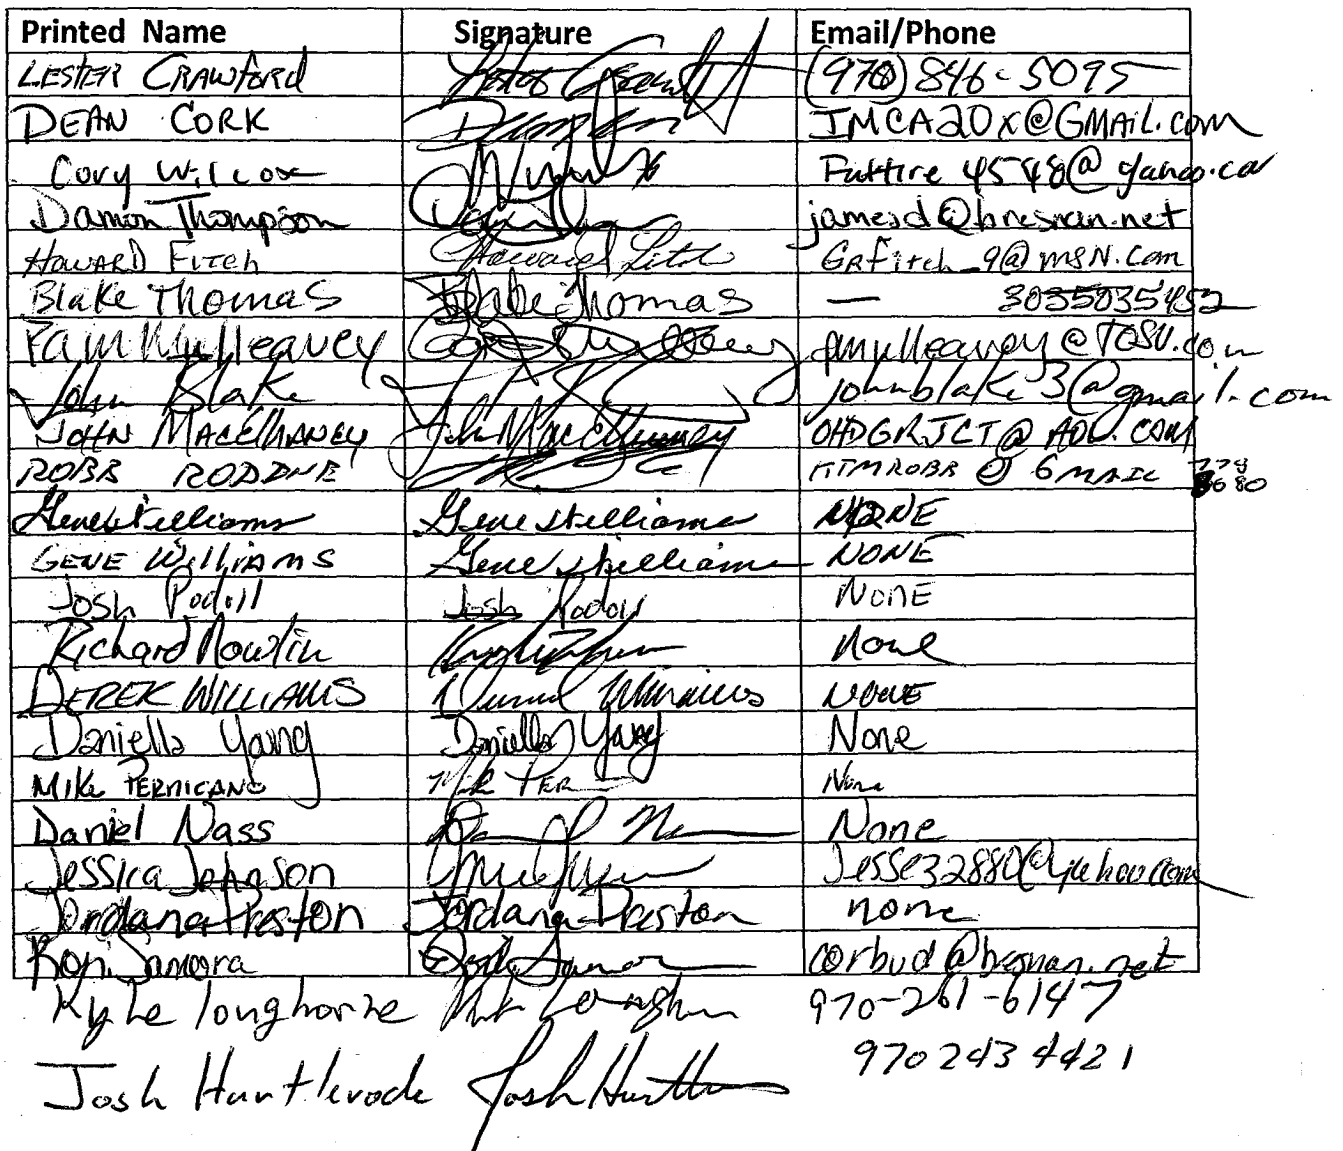 Printed Name Signature Email/Phone
LESTER CRAWFORD Lester Crawford (970) 846-5095
DEAN CORK JMCA20X@GMAIL.COM
Cory Wilcox 4548@yahoo.co
Damon Thompson jamesd@bresnan.net
HOWARD FITCH Howard Fitch GRFitch_9@MSN.Com
Blake Thomas Blake Thomas — 3035035452
Pam Mulleavey pmulleavey@TQSU.com
John Blake johnblake3@gmail.com
JOHN MACELHANEY John MacElhaney OHDGRJCT@AOL.COM
ROBB RODDNE KTMROBB@GMAIL
Gene Williams Gene Williams NONE
GENE WILLIAMS Gene Williams NONE
Josh Josh NONE
Richard Nowlin None
DEREK WILLIAMS NONE
Daniella Yang Daniella Yang None
MIKE PERNICANO None
Daniel Nass None
Jessica Johnson Jesse32880@yahoo.com
Jordana Preston Jordana Preston none
Ron Samora corbud@bresnan.net
Kyle longhorne 970-261-6147
970 243 4421
Josh Huntlerode Josh